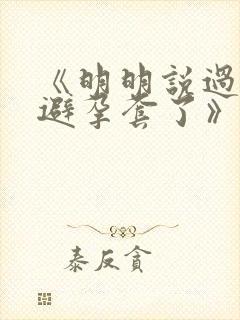 《明明說過
避孕套了》
泰反貪